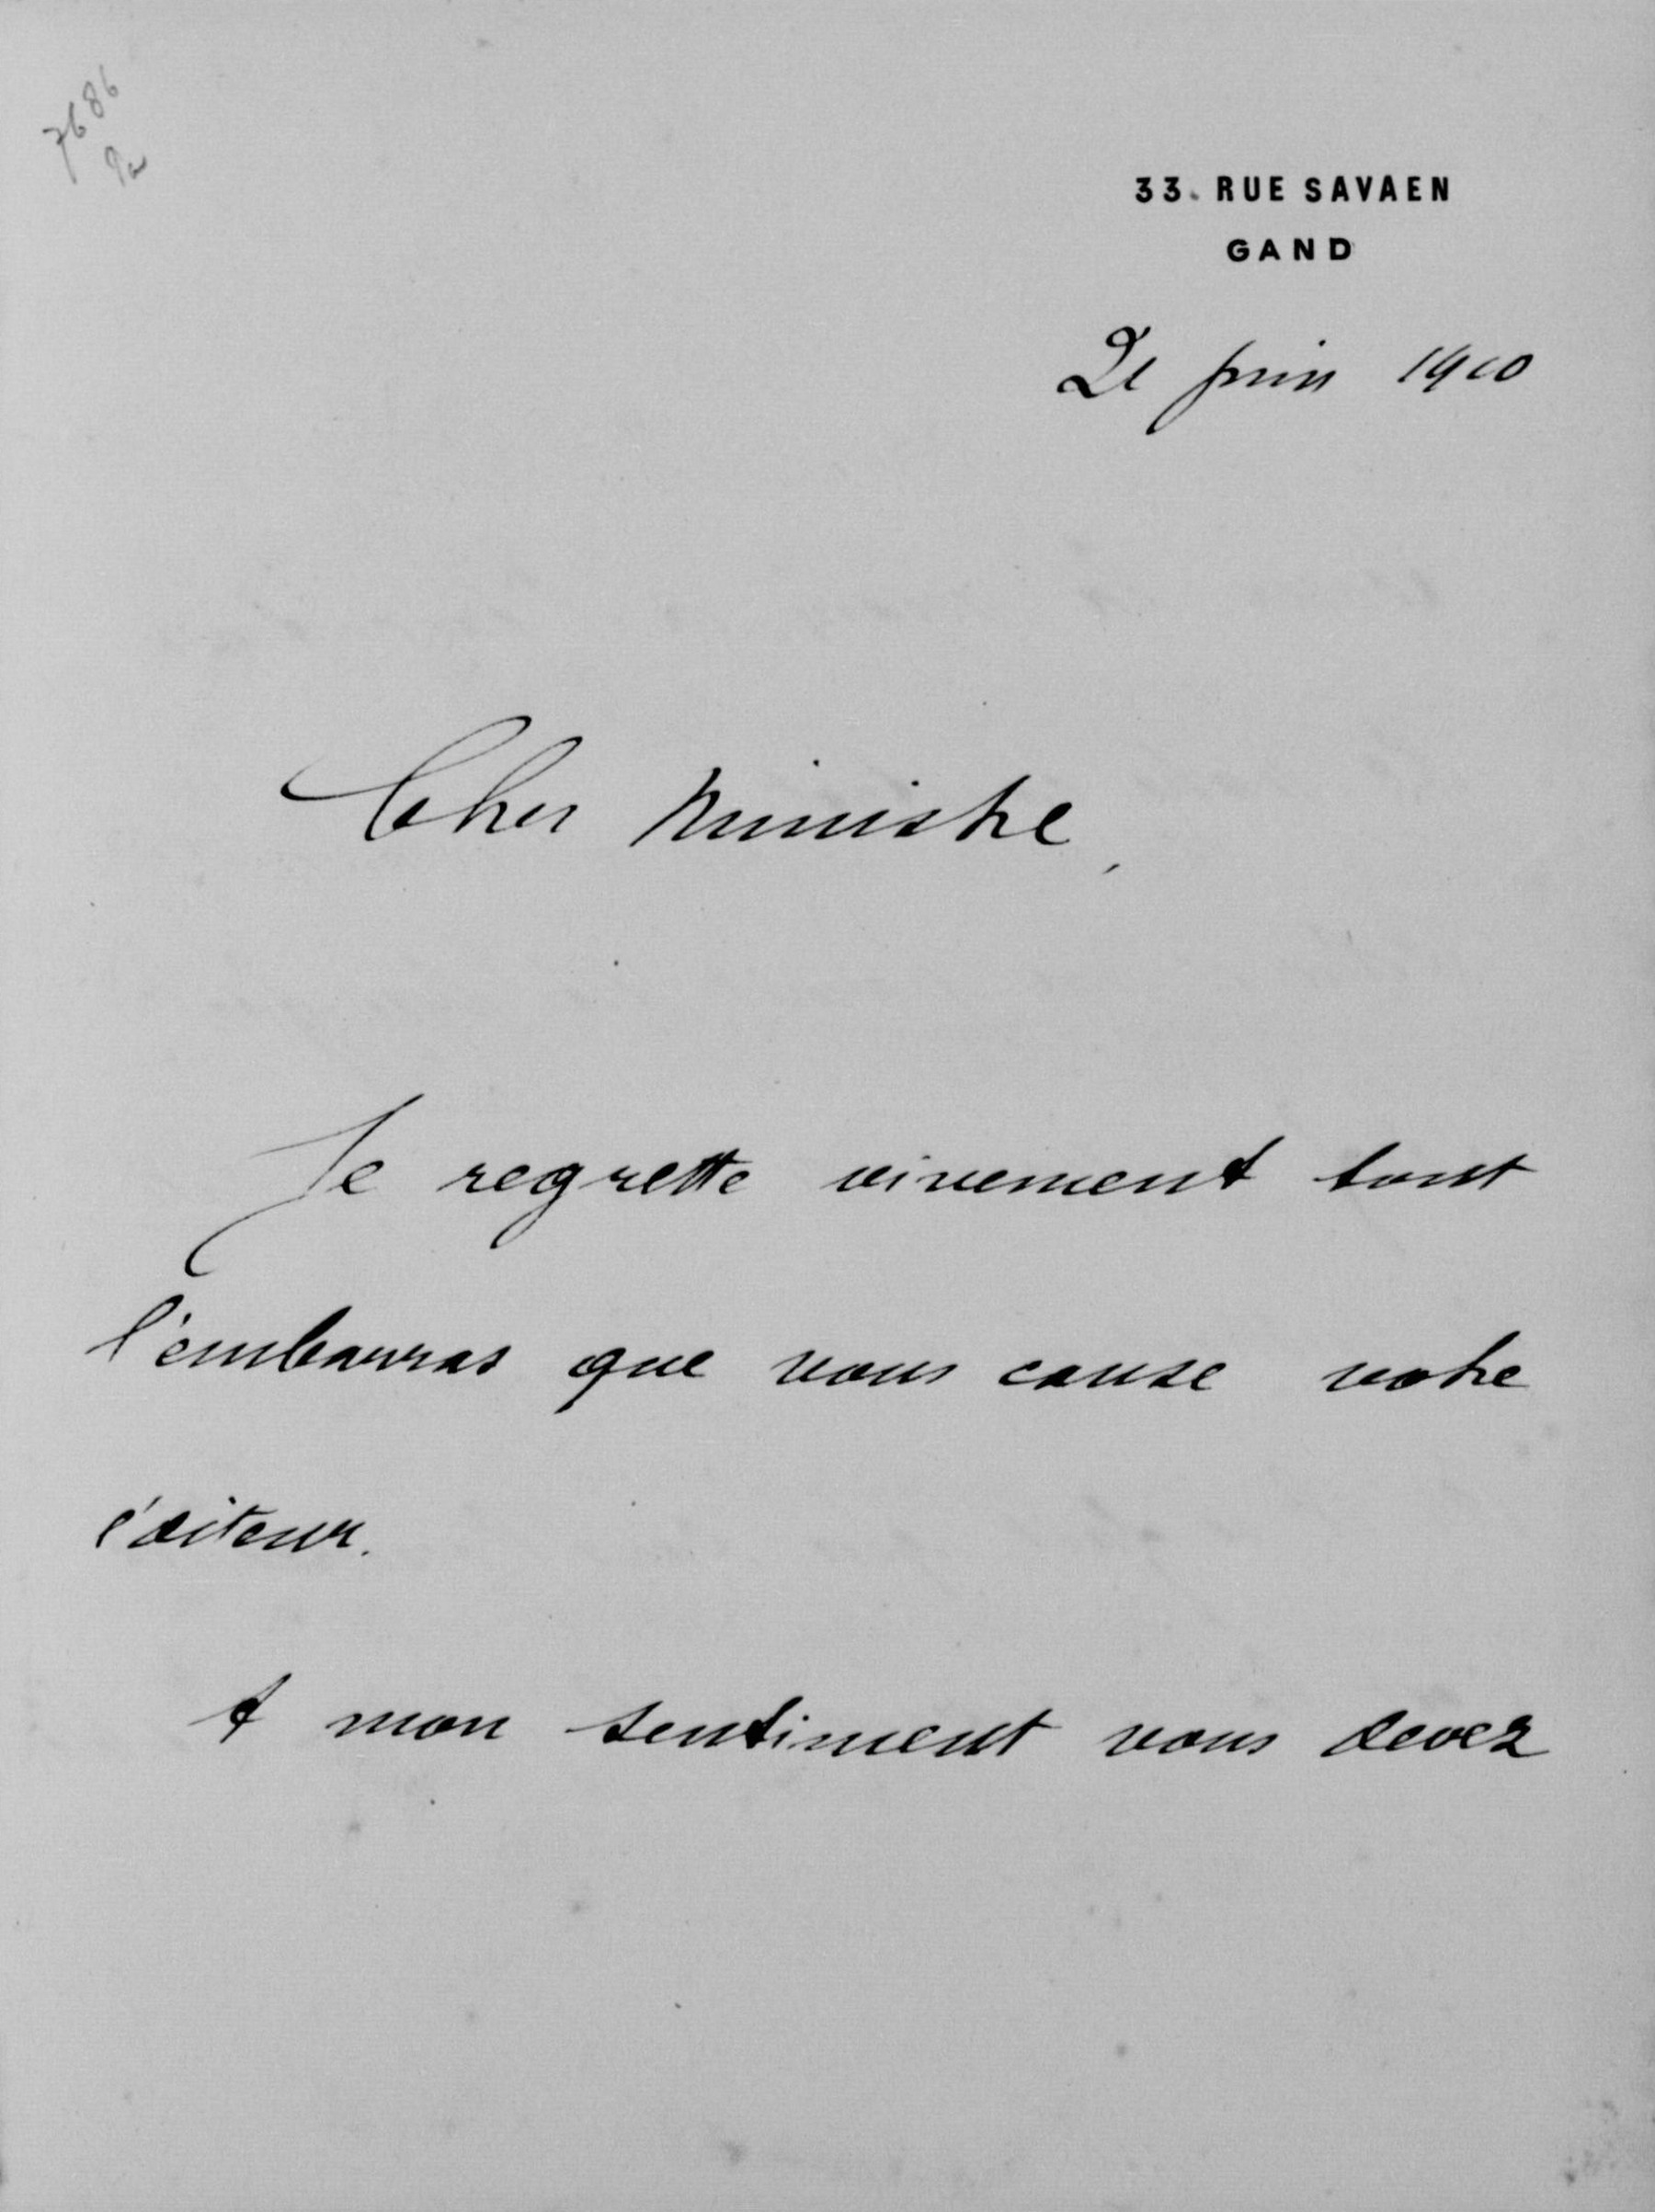 7686
33. RUE SAVAEN
GAND
21 juin 1910
Cher Ministre,
Je regrette vivement tout
l'embarras que vous cause votre
éditeur.
A mon sentiment vous devez